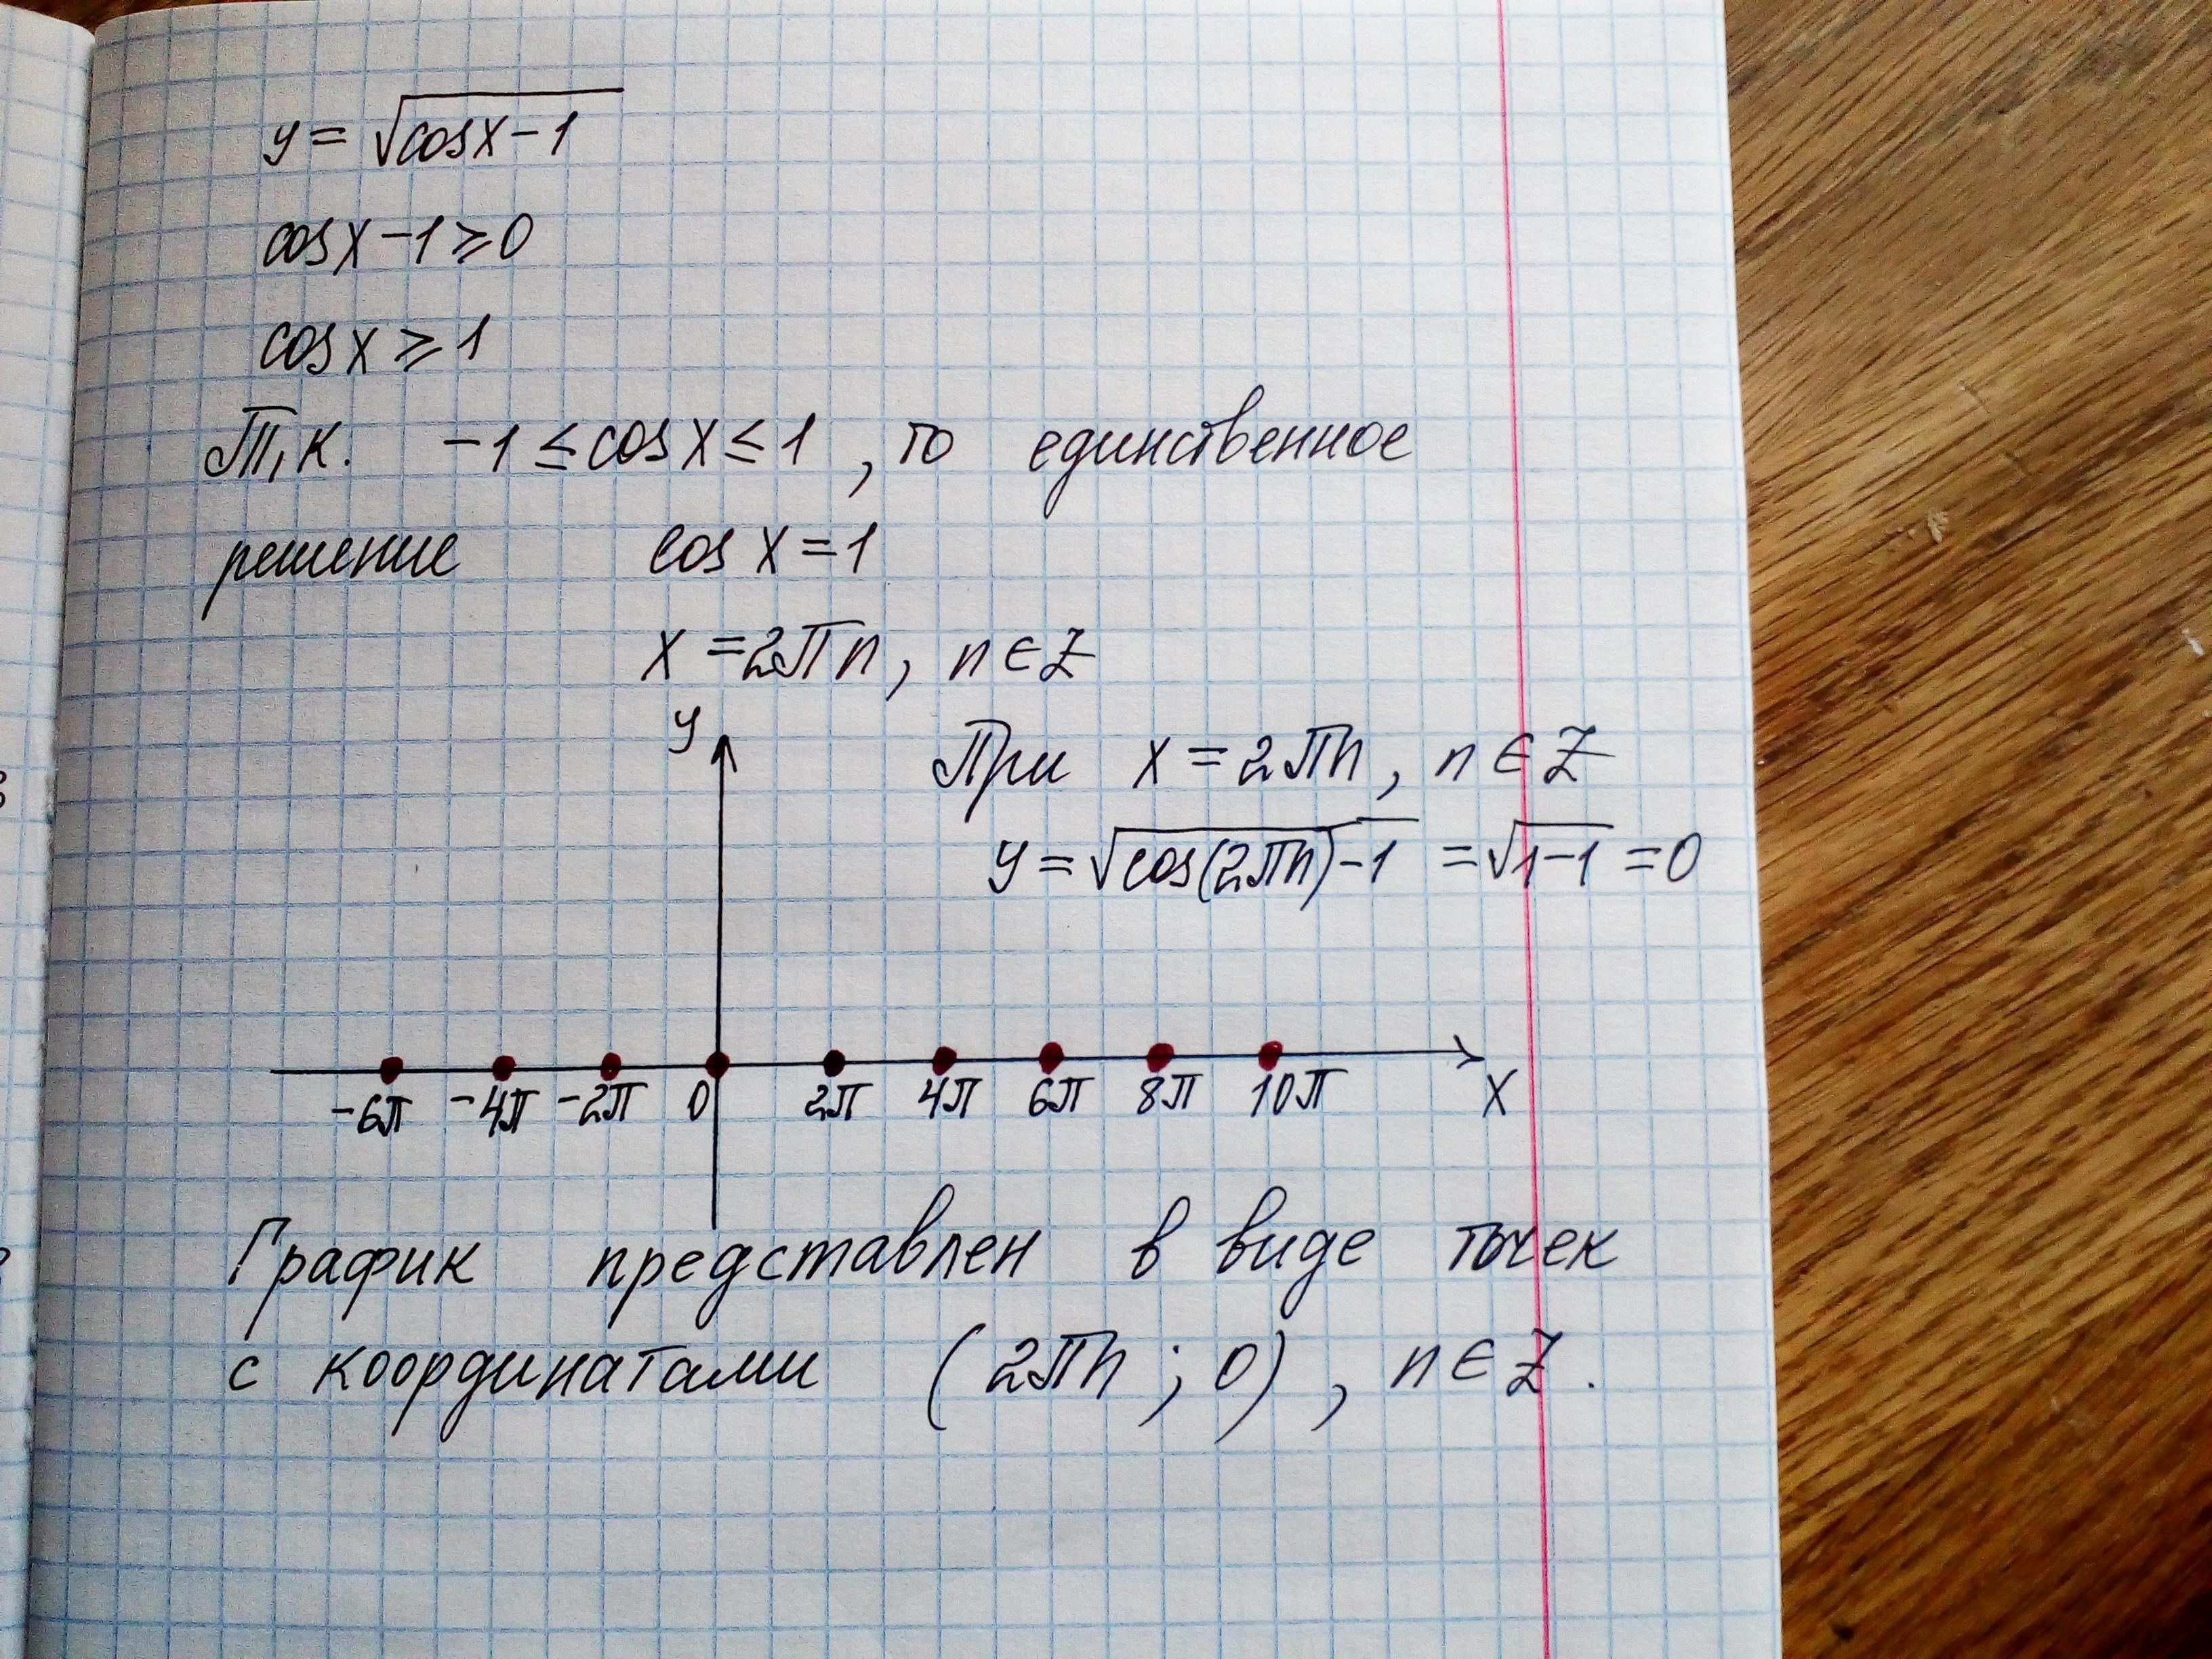 y = √cosx-1
cosx-1≥0
cosx≥1
Т,к. -1≤cosx≤1, то единственное
решение cosx=1
x=2πn, n∈Z
y
При x=2πn, n∈Z
y=√cos(2πn)-1 =√1-1 =0
-6π -4π -2π 0 2π 4π 6π 8π 10π x
График представлен в виде точек
с координатами (2πn; 0), n∈Z.